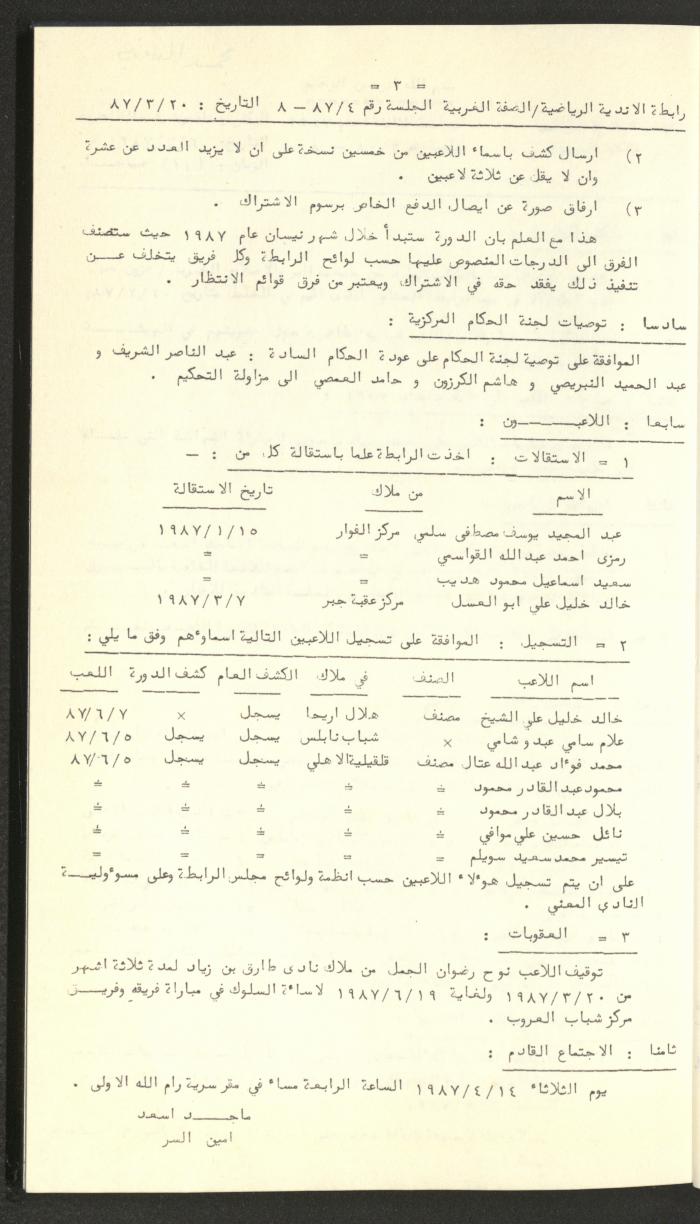 = ٣ =
رابطة الاندية الرياضية/الضفة الغربية الجلسة رقم ٨٧/٤ – ٨ التاريخ : ٨٧/٣/٢٠
٢) ارسال كشف باسماء اللاعبين من خمسين نسخة على ان لا يزيد العدد عن عشرة
وان لا يقل عن ثلاثة لاعبين .
٣) ارفاق صورة عن ايصال الدفع الخاص برسوم الاشتراك .
هذا مع العلم بان الدورة ستبدأ خلال شهر نيسان عام ١٩٨٧ حيث ستصنف
الفرق الى الدرجات المنصوص عليها حسب لوائح الرابطة وكل فريق يتخلف عــن
تنفيذ ذلك يفقد حقه في الاشتراك ويعتبر من فرق قوائم الانتظار .
سادسا : توصيات لجنة الحكام المركزية :
الموافقة على توصية لجنة الحكام على عودة الحكام السادة : عبد الناصر الشريف و
عبد الحميد النبريصي و هاشم الكرزون و حامد العمصي الى مزاولة التحكيم .
سابعا : اللاعبـــــون :
١ = الاستقالات : اخذت الرابطة علما باستقالة كل من : –
الاسم من ملاك تاريخ الاستقالة
عبد المجيد يوسف مصطفى سلمي مركز الفوار ١٩٨٧/١/١٥
رمزى احمد عبدالله القواسمي = =
سعيد اسماعيل محمود هديب = =
خالد خليل علي ابو العسل مركز عقبة جبر ١٩٨٧/٣/٧
٢ = التسجيل : الموافقة على تسجيل اللاعبين التالية اسماوءهم وفق ما يلي :
اسم اللاعب الصنف في ملاك الكشف العام كشف الدورة اللعب
خالد خليل علي الشيخ مصنف هلال اريحا يسجل × ٨٧/٦/٧
علام سامي عبد و شامي × شباب نابلس يسجل يسجل ٨٧/٦/٥
محمد فوءاد عبدالله عتال مصنف قلقيلية الاهلي يسجل يسجل ٨٧/٦/٥
محمود عبد القادر محمود = = = = =
بلال عبد القادر محمود = = = = =
نائل حسين علي موافي = = = = =
تيسير محمد سعيد سويلم = = = = =
على ان يتم تسجيل هوءلاء اللاعبين حسب انظمة ولوائح مجلس الرابطة وعلى مسوءوليـــة
النادي المعني .
٣ = العقوبات :
توقيف اللاعب نوح رضوان الجمل من ملاك نادى طارق بن زياد لمدة ثلاثة اشهر
من ١٩٨٧/٣/٢٠ ولغاية ١٩٨٧/٦/١٩ لاساءة السلوك في مباراة فريقه وفريــق
مركز شباب العروب .
ثامنا : الاجتماع القادم :
يوم الثلاثاء ١٩٨٧/٤/١٤ الساعة الرابعة مساء في مقر سرية رام الله الاولى .
ماجـــد اسعد
امين السر